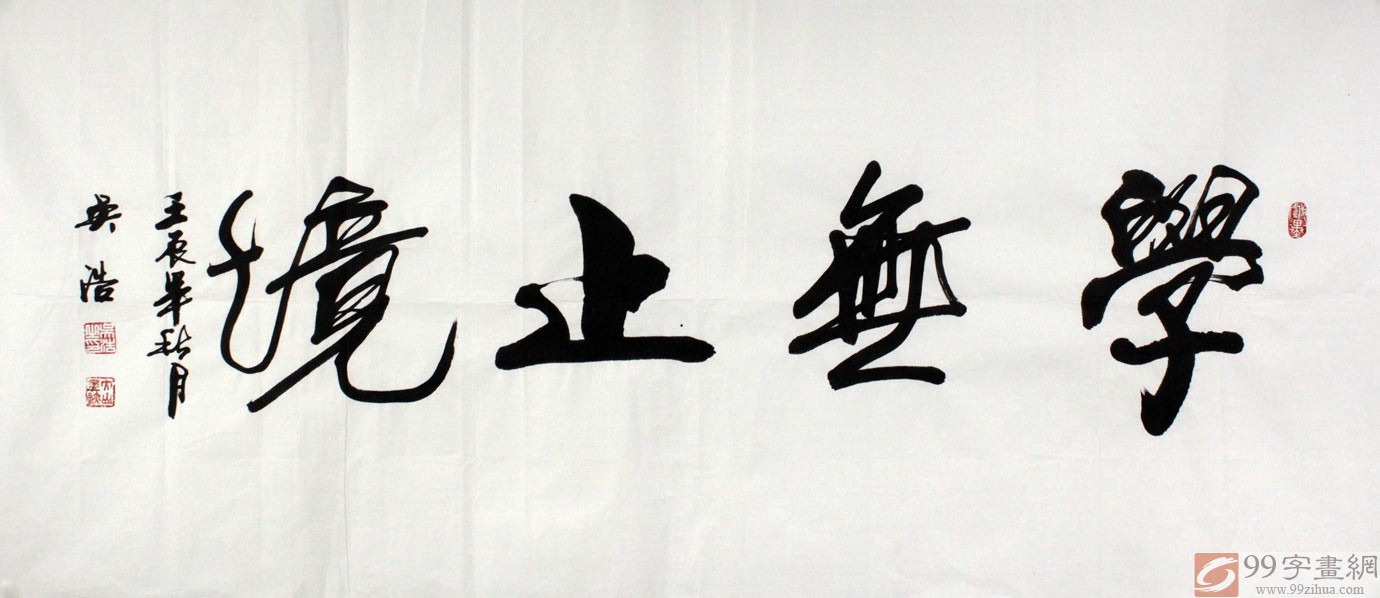 學無止境
壬辰年秋月
吴浩
99字畫網
www.99zihua.com